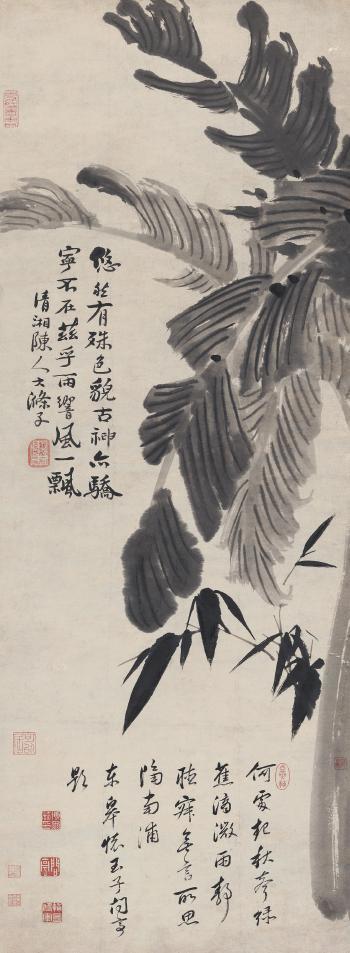 悠然有殊色貌古神亦驕
寧不在茲乎雨響風一飄
清湘陳人大滌子
何處起秋聲綠
蕉滴溦雨靜
聽寂無言所思
隔南浦
東皋懷玉子問亭
題